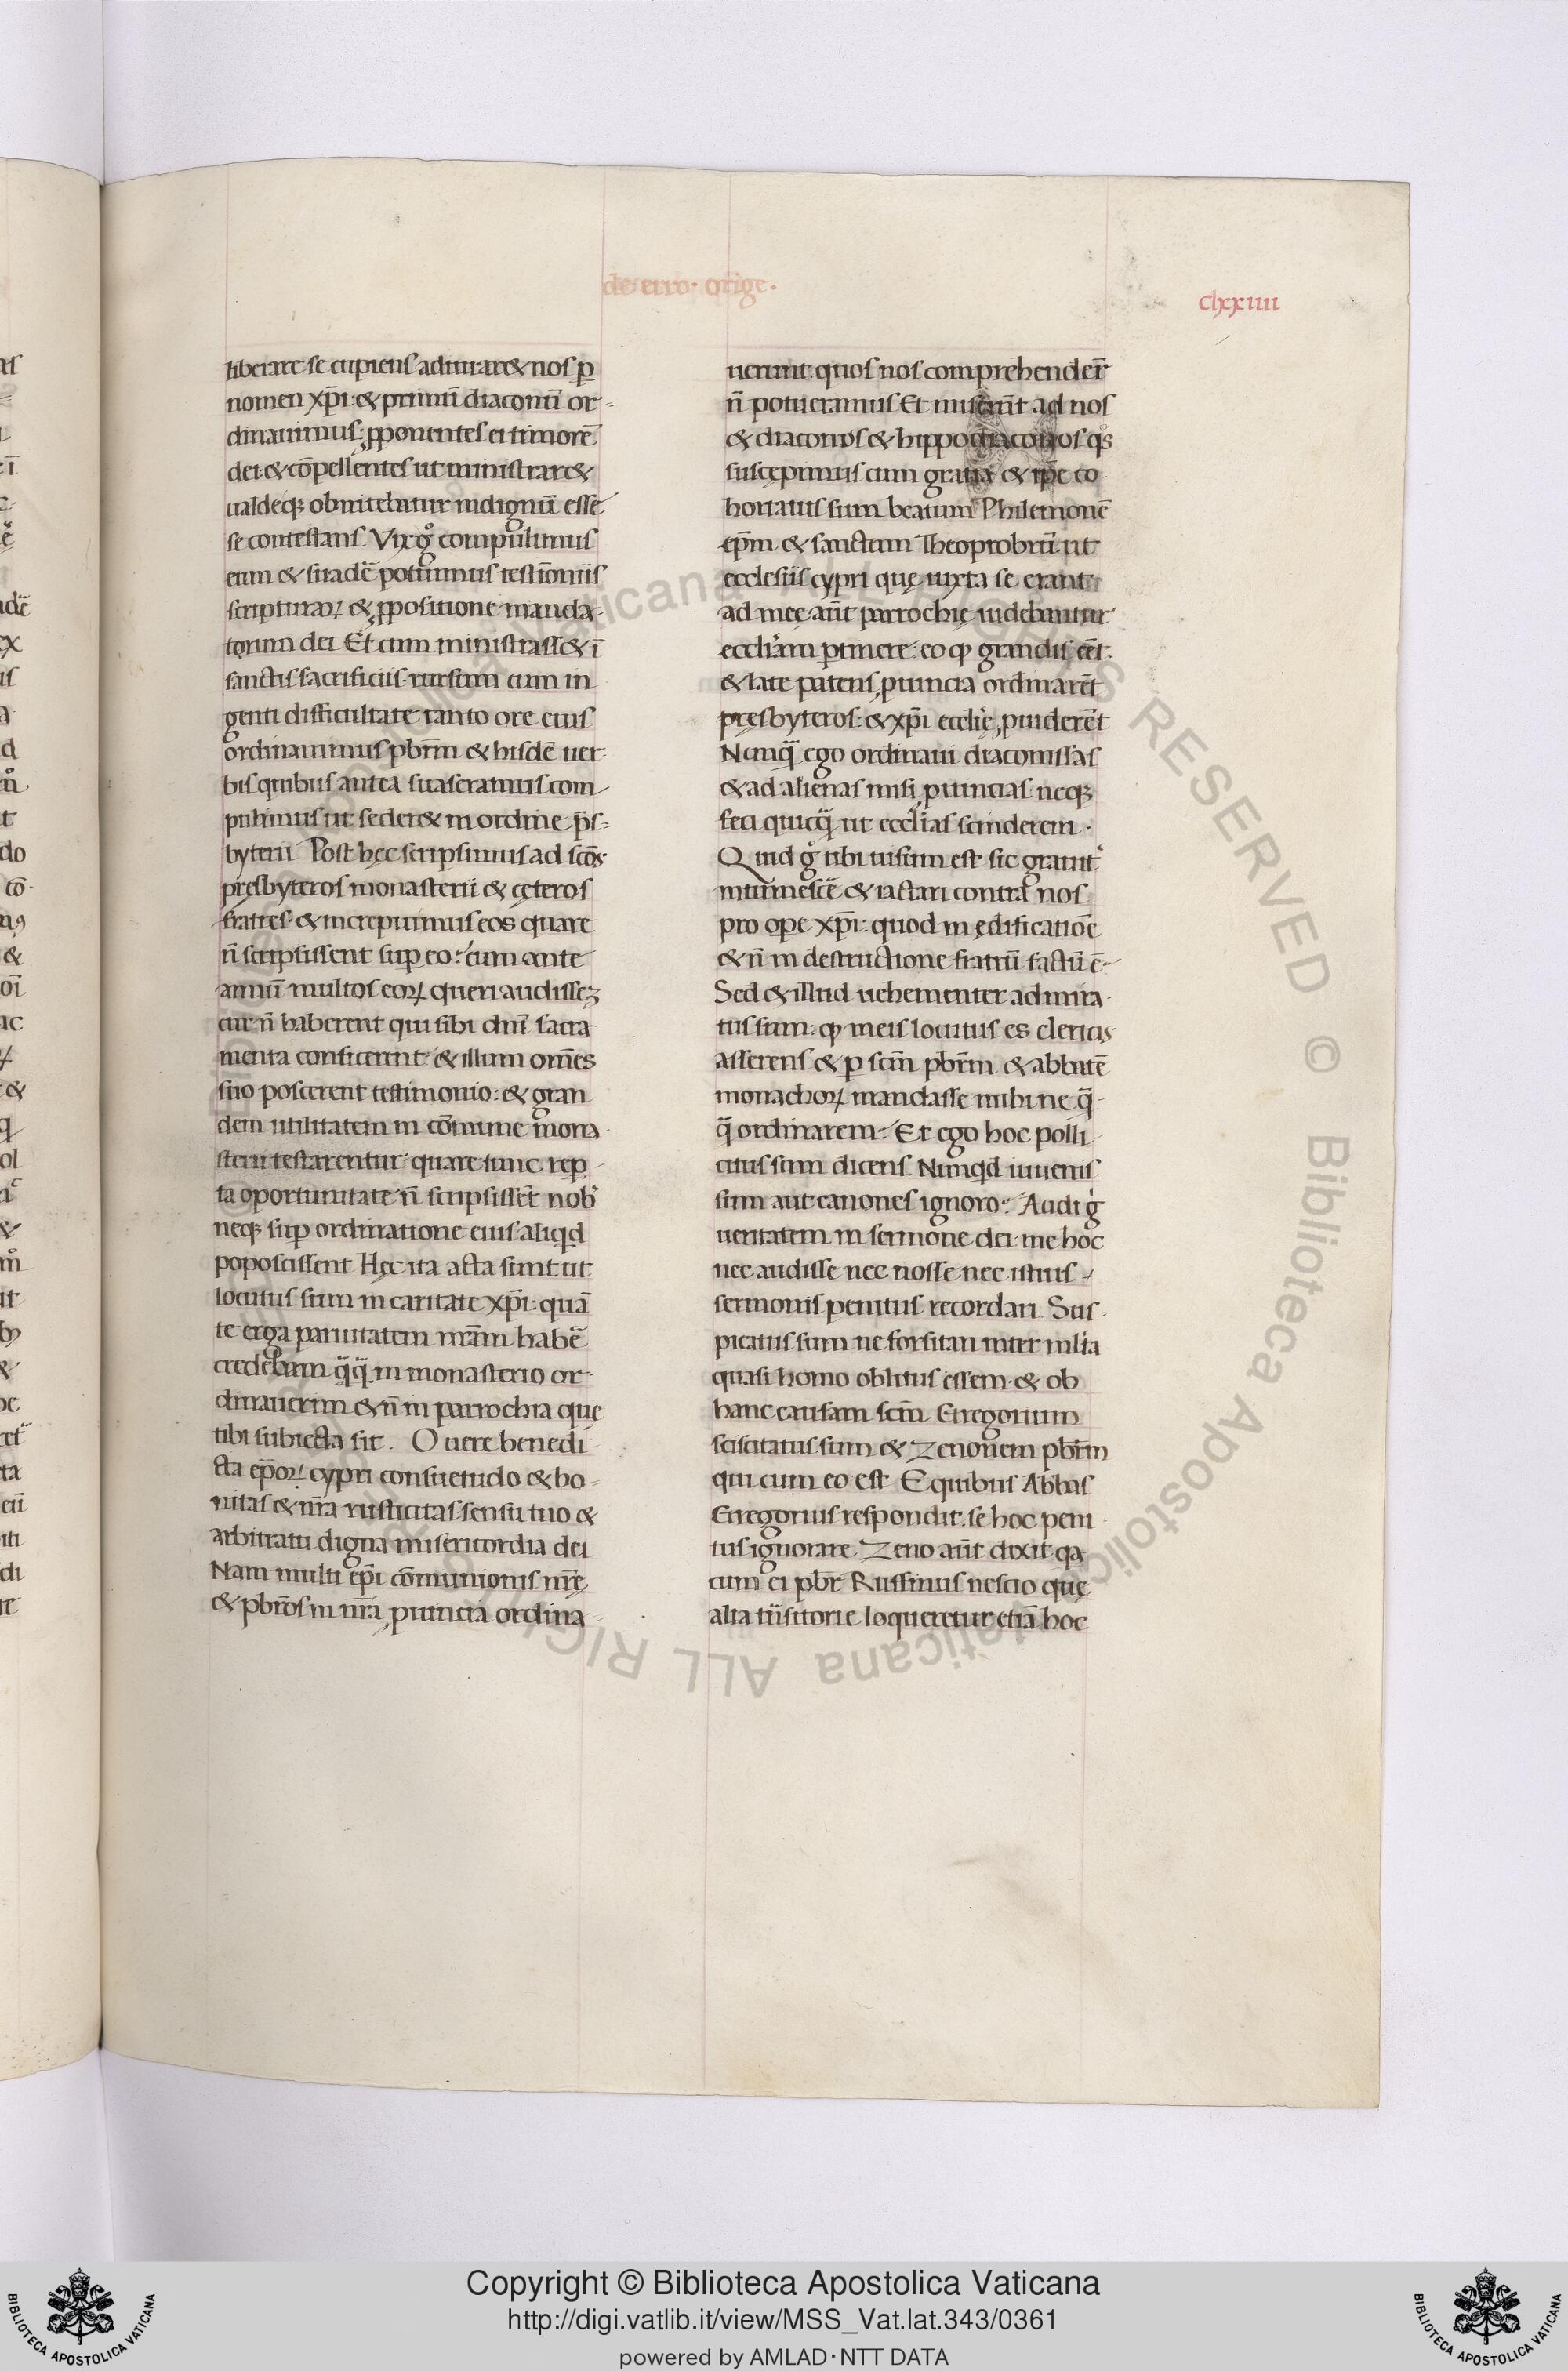 de erro. orige.
clxxiiii
liberare se cupiens adiurar& nos ꝑ
nomen xp̄i: & primū diaconū or-
dinauimus: ꝓponentes ei timorē
dei: & cōpellentes ut ministrar&
ualdeqꝫ obnitebatur indignū esse
se contestans. Vix gͦ compulimus
eum & suadē potuimus testiōniis
scripturaꝝ & ꝓpositione manda-
torum dei Et cum ministrass& ī
sanctis sacrificiis rursum cum in
genti difficultate tanto ore eius
ordinauimus pbrm̄ & hisdē uer-
bis quibus antea suaseramus com
pulimus ut seder& in ordine p̄s-
byterii Post hęc scripsimus ad scōs
presbyteros monasterii & ceteros
fratres & increpuimus eos quare
n̄ scripsissent suꝑ eo: cum ante
annū multos eoꝝ queri audisseꝫ
cur n̄ haberent qui sibi dn̄i sacra
menta conficerent & illum om̄es
suo poscerent testimonio: & gran
dem utilitatem in cōmune mona
sterii testarentur quare tunc reꝑ
ta oportunitate n̄ scripsissēt nob
neqꝫ suꝑ ordinatione eius aliqd
poposcissent Hęc ita acta sunt ut
locutus sum in caritate xp̄i: quā
te erga paruitatem nr̄am habē
credebam q̄q̄ in monasterio or-
dinauerim & n̄ in parrochia que
tibi subiecta sit. O uere benedi
cta ep̄oꝝ cypri consuetudo & bo-
nitas & nr̄a rusticitas sensu tuo &
arbitratu digna misericordia dei
Nam multi ep̄i cōmunionis nr̄ę
& pbrōs in nr̄a ꝓuincia ordina
uerunt quos nos comprehender̄
n̄ potueramus Et miserūt ad nos
& diaconos & hippodiaconos qͦs
suscepimus cum gratia & ip̄e co
hortatus sum beatum Philemonē
ep̄m & sanctum Theoprobrū ut
ecclesiis cypri quę iuxta se erant
ad mee aūt parrochię uidebantur
eccliam ꝑtinere: eo ꝙ grandis eēt.
& late patens ꝓuincia ordinarēt
presbyteros: & xp̄i ecclie ꝓuiderēt
Nunq̄ ego ordinaui diaconissas
& ad alienas misi ꝓuincias: neqꝫ
feci quicq̄ ut ecclias scinderem.
Quid gͦ tibi uisum est sic grauit
intumescē & iactari contra nos
pro ope xp̄i: quod in edificatiōe
& n̄ in destructione fratrū factū ē-
Sed & illud uehementer admira-
tus sum: ꝙ meis locutus es clericis
asserens & ꝑ scm̄ pbrm̄ & abbatē
monachoꝝ mandasse mihi ne q̄-
q̄ ordinarem: Et ego hoc polli
citus sum dicens Nunqd iuuenis
sum aut canones ignoro: Audi gͥ
ueritatem in sermone dei me hoc
nec audisse nec nosse nec istius
sermonis penitus recordari Sus-
picatus sum ne forsitan inter mlta
quasi homo oblitus essem & ob
hanc causam scm̄ Gregorium
sciscitatus sum & Zenonem pbrm̄
qui cum eo est E quibus Abbas
Gregorius respondit se hoc peni
tus ignorare Zeno aūt dixit qa
cum ei pbr̄ Ruffinus nescio quę
alia loqueretur etiā hoc
Copyright © Biblioteca Apostolica Vaticana
http://digi.vatlib.it/view/MSS_Vat.lat.343/0361
powered by AMLAD·NTT DATA